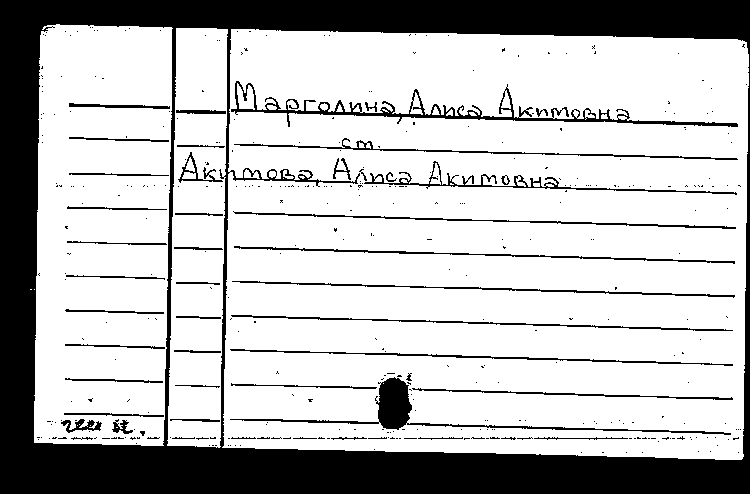 Марголина, Алиса Акимовна
ст.
Акимова, Алиса Акимовна